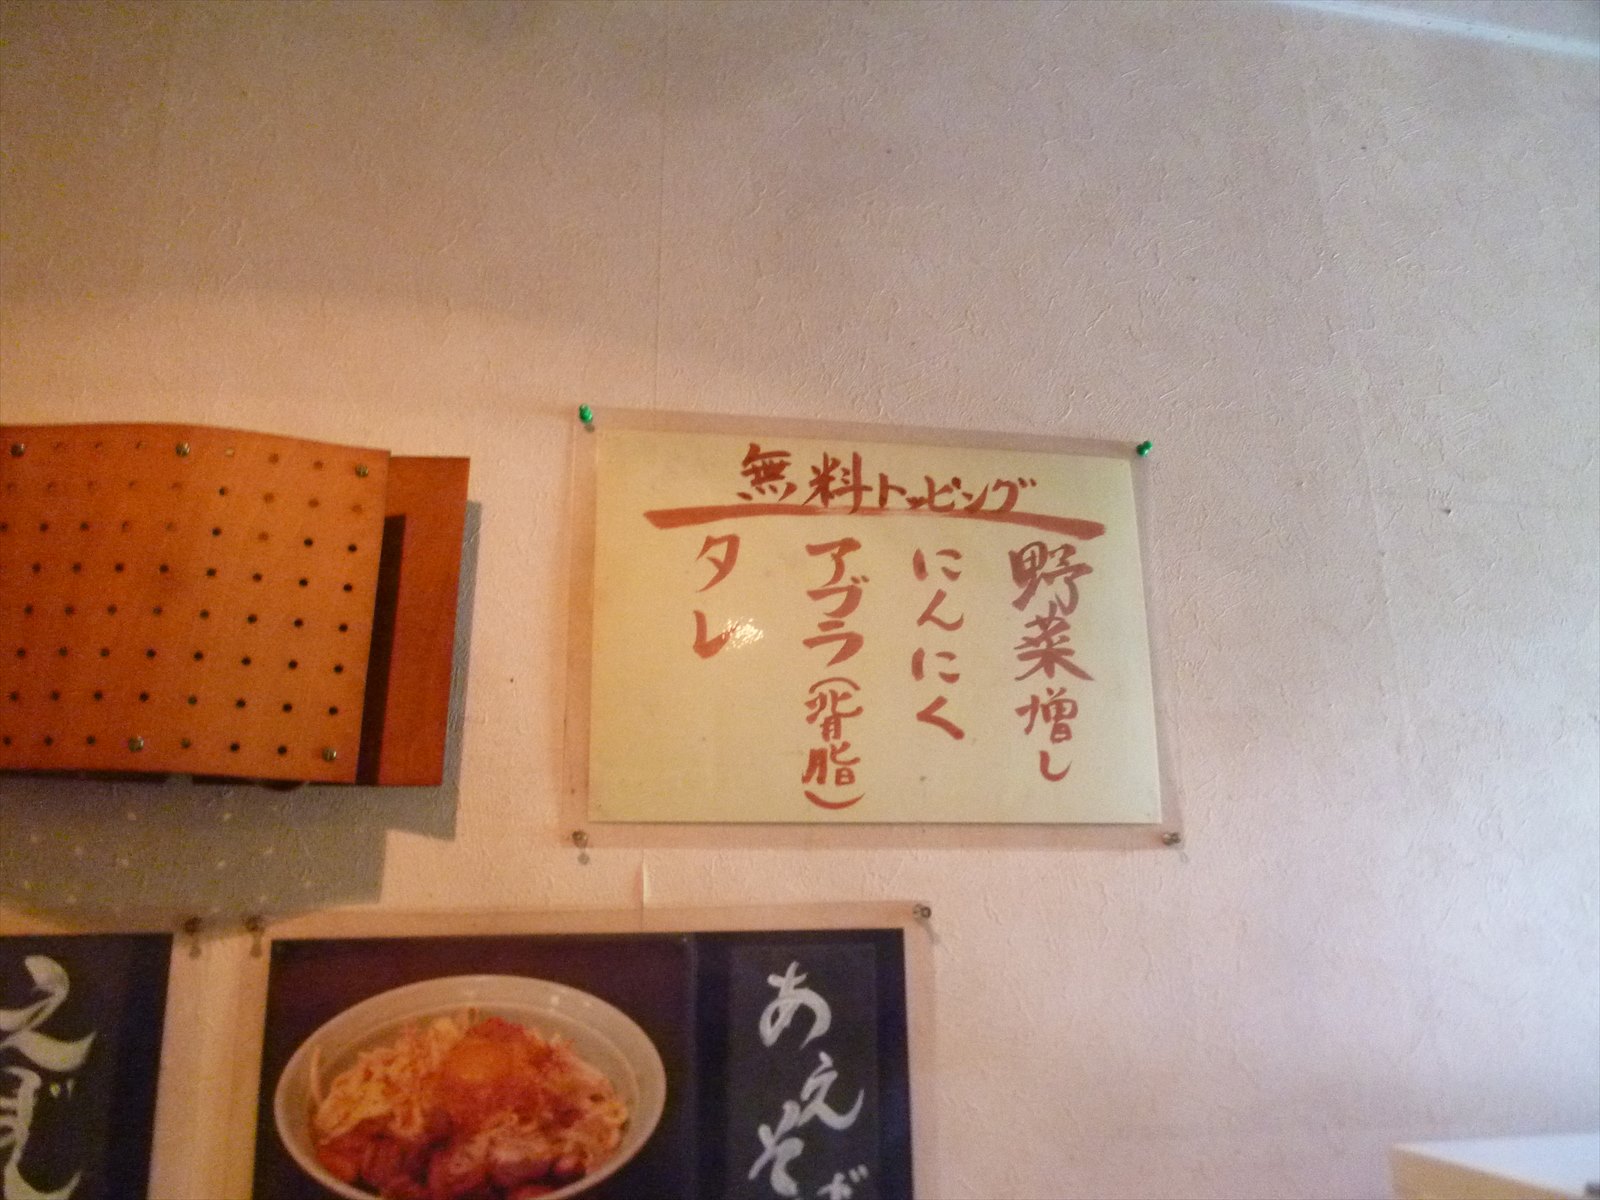 無料トッピング
野菜増し
にんにく
アブラ(背脂)
タレ
あえそ